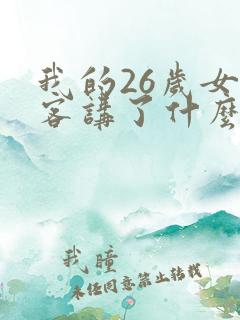 我的26歲女
客講了什麼
我瞳
未經同意禁止转载